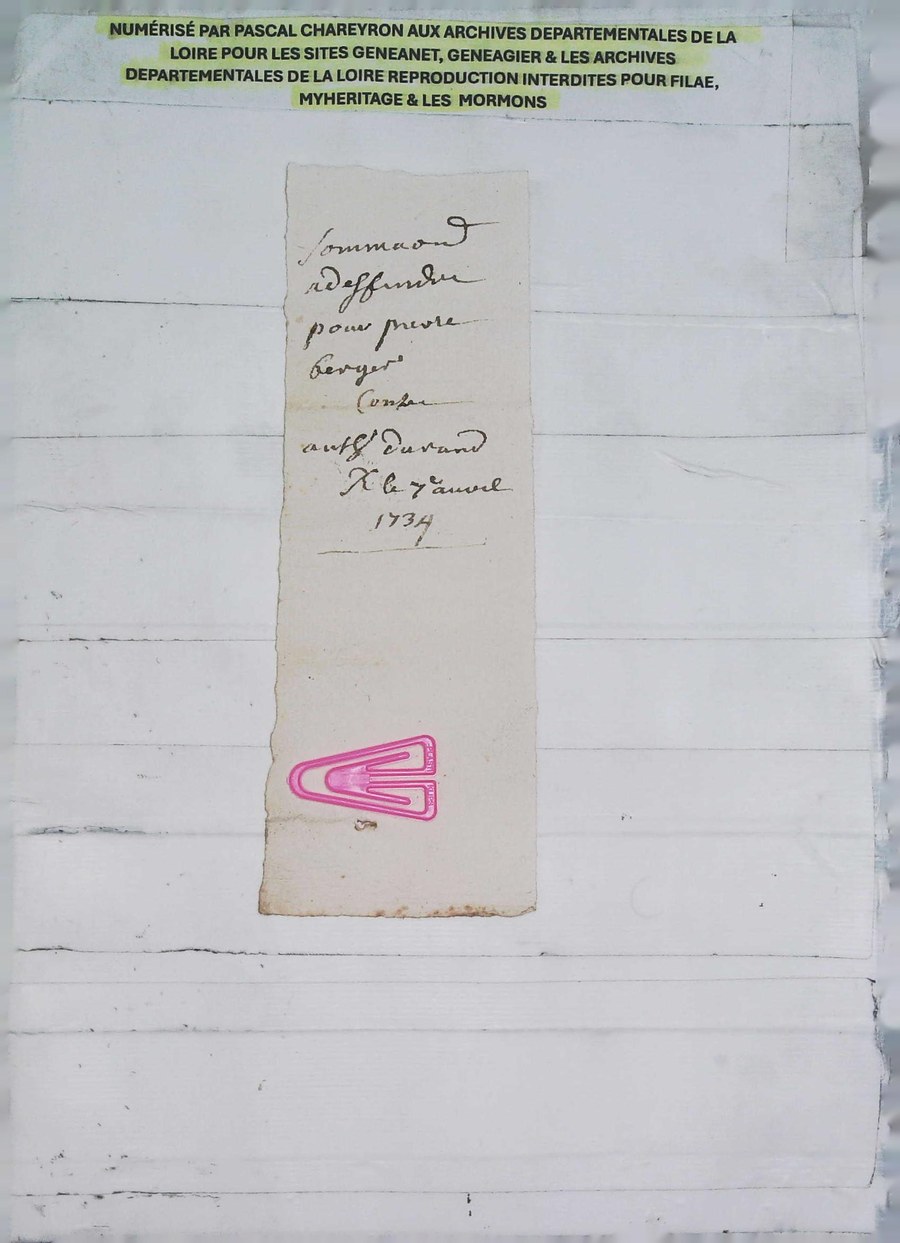 NUMÉRISÉ PAR PASCAL CHAREYRON AUX ARCHIVES DEPARTEMENTALES DE LA
LOIRE POUR LES SITES GENEANET, GENEAGIER & LES ARCHIVES
DEPARTEMENTALES DE LA LOIRE REPRODUCTION INTERDITES POUR FILAE,
MYHERITAGE & LES MORMONS
pour pierre
berger
Contre
anth. durand
le 7e auvril
1734